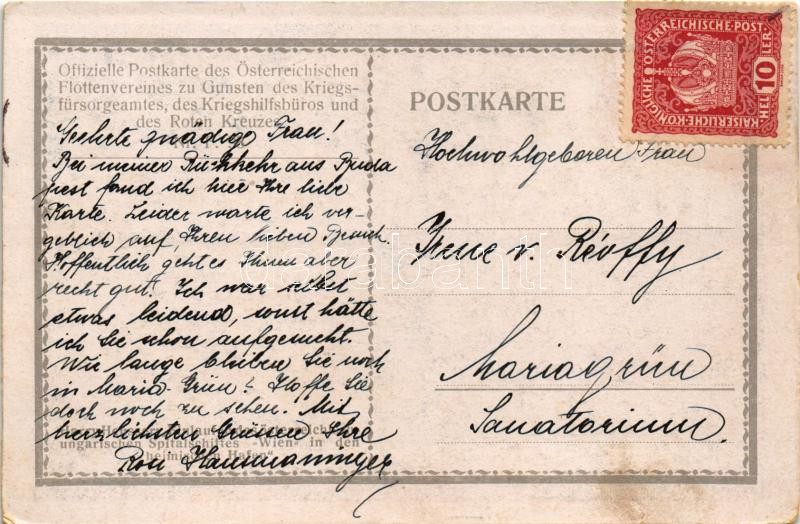 Offizielle Postkarte des Österreichischen
Flottenvereines zu Gunsten des Kriegs-
fürsorgeamtes, des Kriegshilfsbüros und
des Roten Kreuzes
Geehrte gnädige Frau!
Bei meiner Rückkehr aus Buda
pest fand ich hier Ihre liebe
Karte. Leider warte ich ver-
geblich auf Ihren lieben Besuch.
Hoffentlich geht es Ihnen aber
recht gut. Ich war selbst
etwas leidend, sonst hätte
ich Sie schon aufgesucht.
Wie lange bleiben Sie noch
in Maria-Grün? Hoffe Sie
doch noch zu sehen. Mit
herzlichsten Grüssen Ihre
ungarischen Spitalschiffes "Wien" in den
heimischen Hafen
POSTKARTE
Hochwohlgeboren Frau
Irene v. Réöffy
Mariagrün
Sanatorium.
KAISERLICHE KÖNIGLICHE ÖSTERREICHISCHE POST
10
HELLER